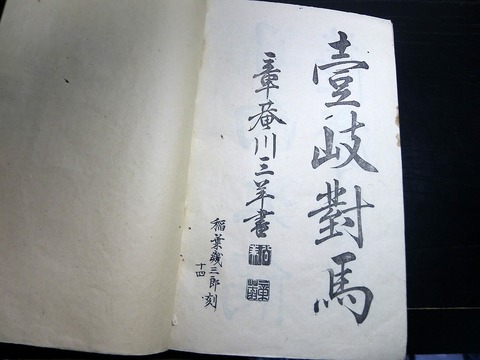 壹岐對馬
章菴川三羊書
稲葉磯三郎刻
十四